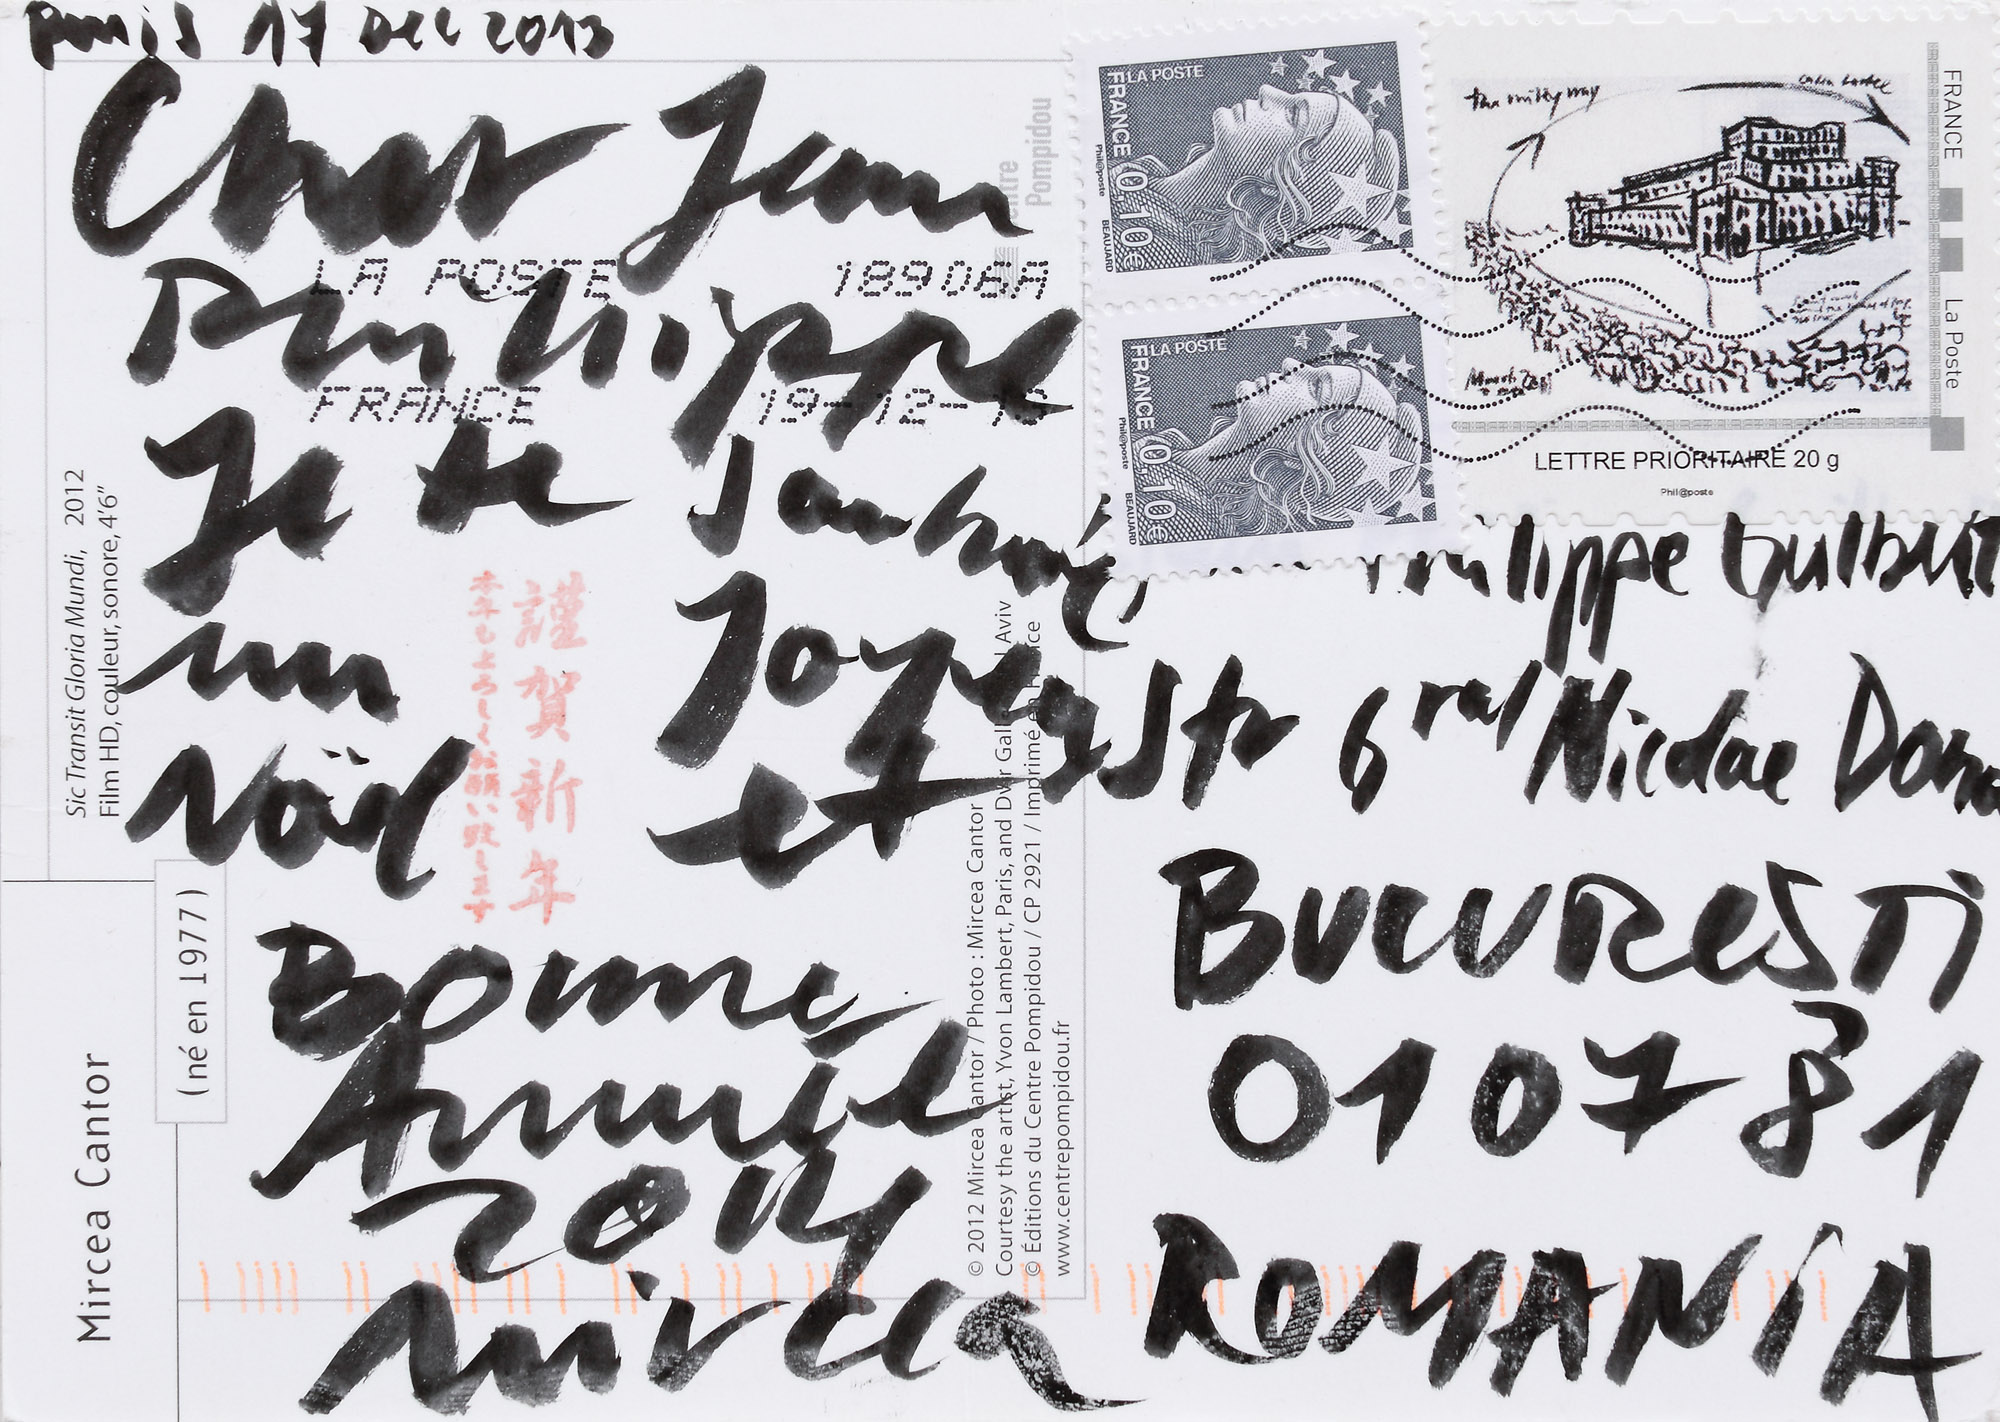 Paris 17 DEC 2013
Cher Jean
Philippe
Je te souhaite
un Joyeux
Noël et
Bonne
Année
2014
Mircea
LA POSTE 18908A
FRANCE 19-12-13
Centre
Pompidou
Sic Transit Gloria Mundi, 2012
Film HD, couleur, sonore, 4'6"
謹賀新年
Mircea Cantor
(né en 1977)
© 2012 Mircea Cantor / Photo : Mircea Cantor
Courtesy the artist, Yvon Lambert, Paris, and Dvir Gallery, Tel Aviv
© Éditions du Centre Pompidou / CP 2921 / Imprimé en France
www.centrepompidou.fr
LA POSTE
FRANCE 0,10€
Phil@poste BEAUJARD
LA POSTE
FRANCE 0,10€
Phil@poste BEAUJARD
the milky way
FRANCE
La Poste
LETTRE PRIORITAIRE 20 g
Phil@poste
Philippe
Str Nicolae
BUCURESTI
010781
ROMANiA